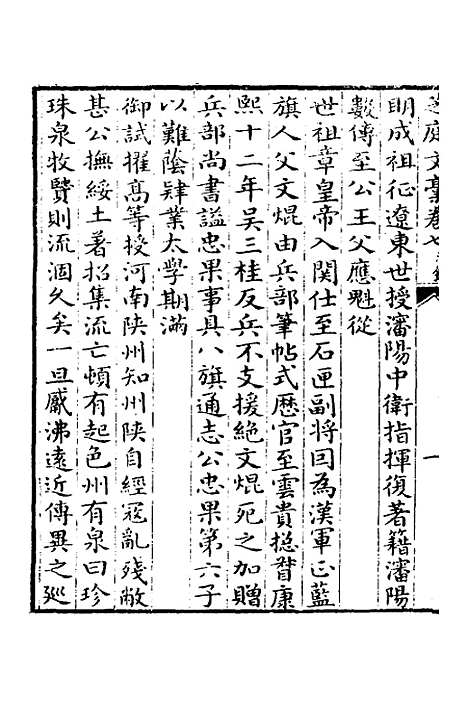 庭文稾卷七
一
明成祖征遼東世授瀋陽中衛指揮復著籍瀋陽
數傳至公王父應魁從
世祖章皇帝入関仕至石匣副將回為漢軍正藍
旗人父文焜由兵部筆帖式歷官至雲貴總督康
熙十二年吳三桂反兵不支援絶文焜死之加贈
兵部尚書謚忠果事具八旗通志公忠果第六子
以難蔭肄業太學期滿
御試擢髙等授河南陝州知州陝自經冦亂殘敝
甚公撫綏土著招集流亡頓有起色州有泉曰珍
珠泉牧賢則流涸久矣一旦觱沸遠近傳異之廵